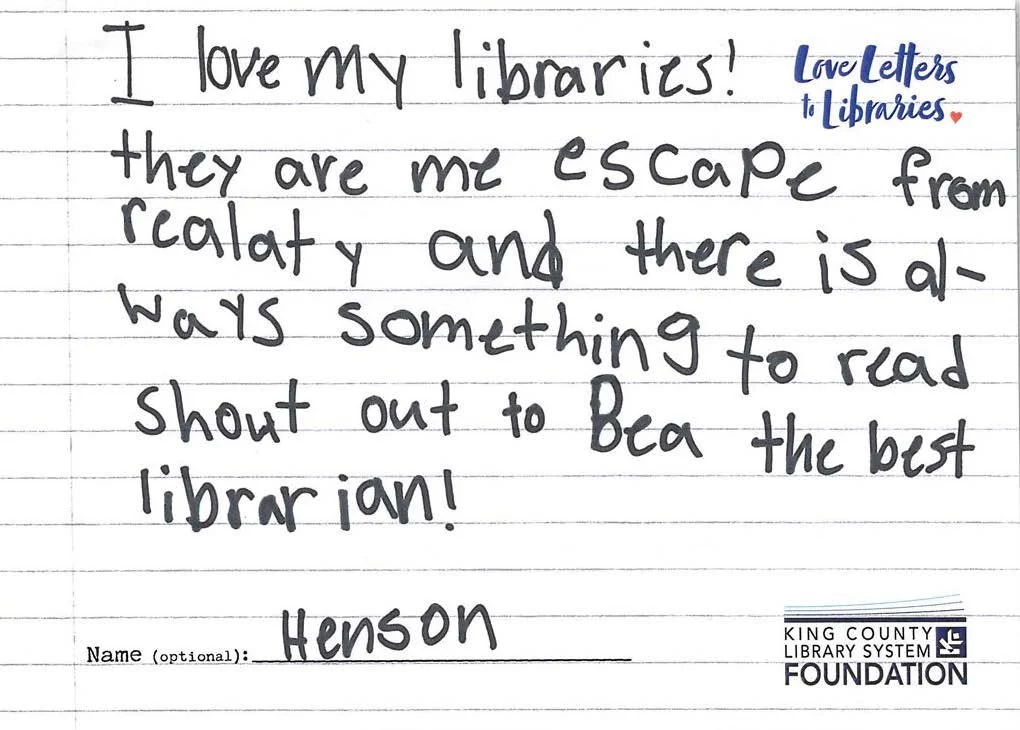 I love my libraries!
Love Letters
to Libraries
they are me escape from
realaty and there is al-
ways something to read
shout out to Bea the best
librarian!
Name (optional): Henson
KING COUNTY
LIBRARY SYSTEM
FOUNDATION